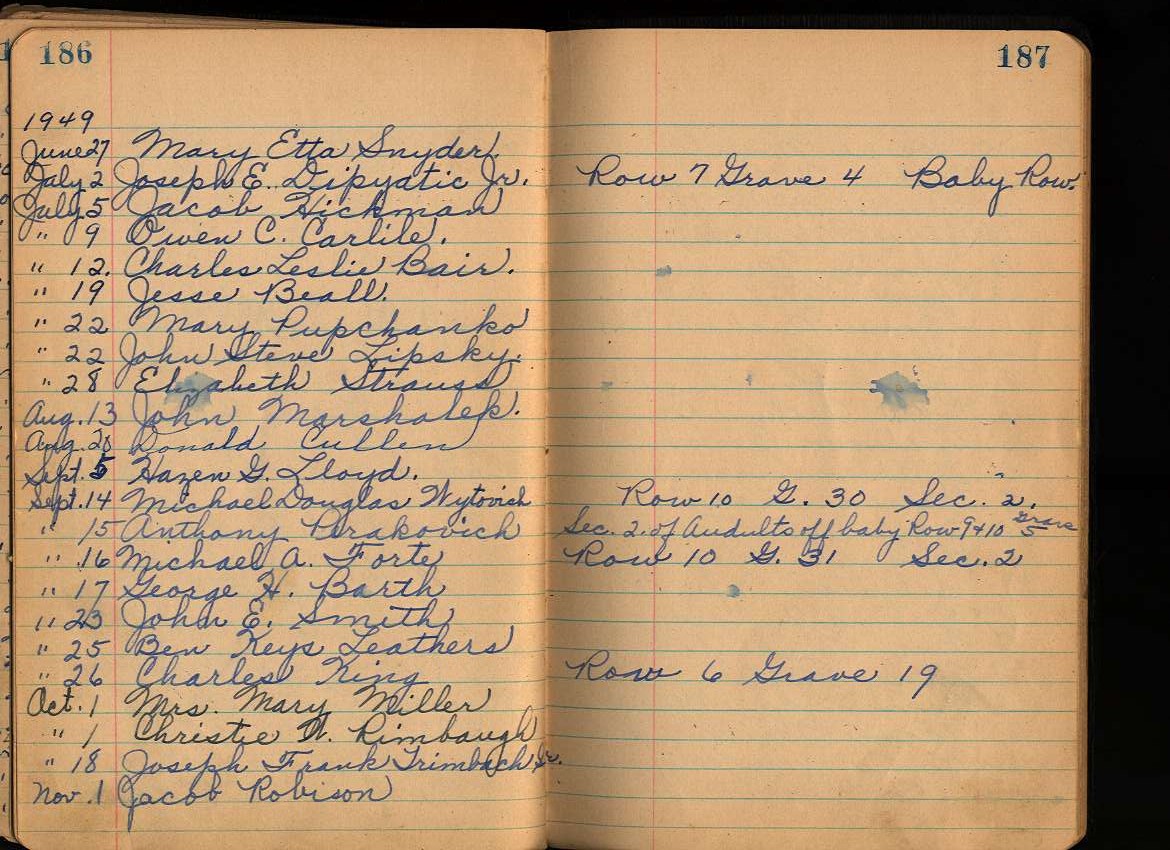 186
187
1949
June 27 Mary Etta Snyder.
July 2 Joseph E. Dipyatic Jr. Row 7 Grave 4 Baby Row.
July 5 Jacob Hickman
" 9 Owen C. Carlile.
" 12. Charles Leslie Bair.
" 19 Jesse Beall.
" 22 Mary Pupchanko
" 22 John Steve Lipsky.
" 28 Elizabeth Strauss
Aug. 13 John Marshalek.
Aug. Donald Cullen
Sept. 5 Hazen G. Lloyd.
Sept. 14 Michael Douglas Wytovich Row 10 G. 30 Sec. 2.
" 15 Anthony Perakovich Sec. 2. of Audults off baby Row 9+10 Grave 5
" 16 Michael A. Forte Row 10 G. 31 Sec. 2
" 17 George H. Barth
" 23 John E. Smith
" 25 Ben Keys Leathers
" 26 Charles King Row 6 Grave 19
Oct. 1 Mrs. Mary Miller
" 1 Christie W. Rimbaugh
" 18 Joseph Frank Trimbach Sr.
Nov. 1 Jacob Robison